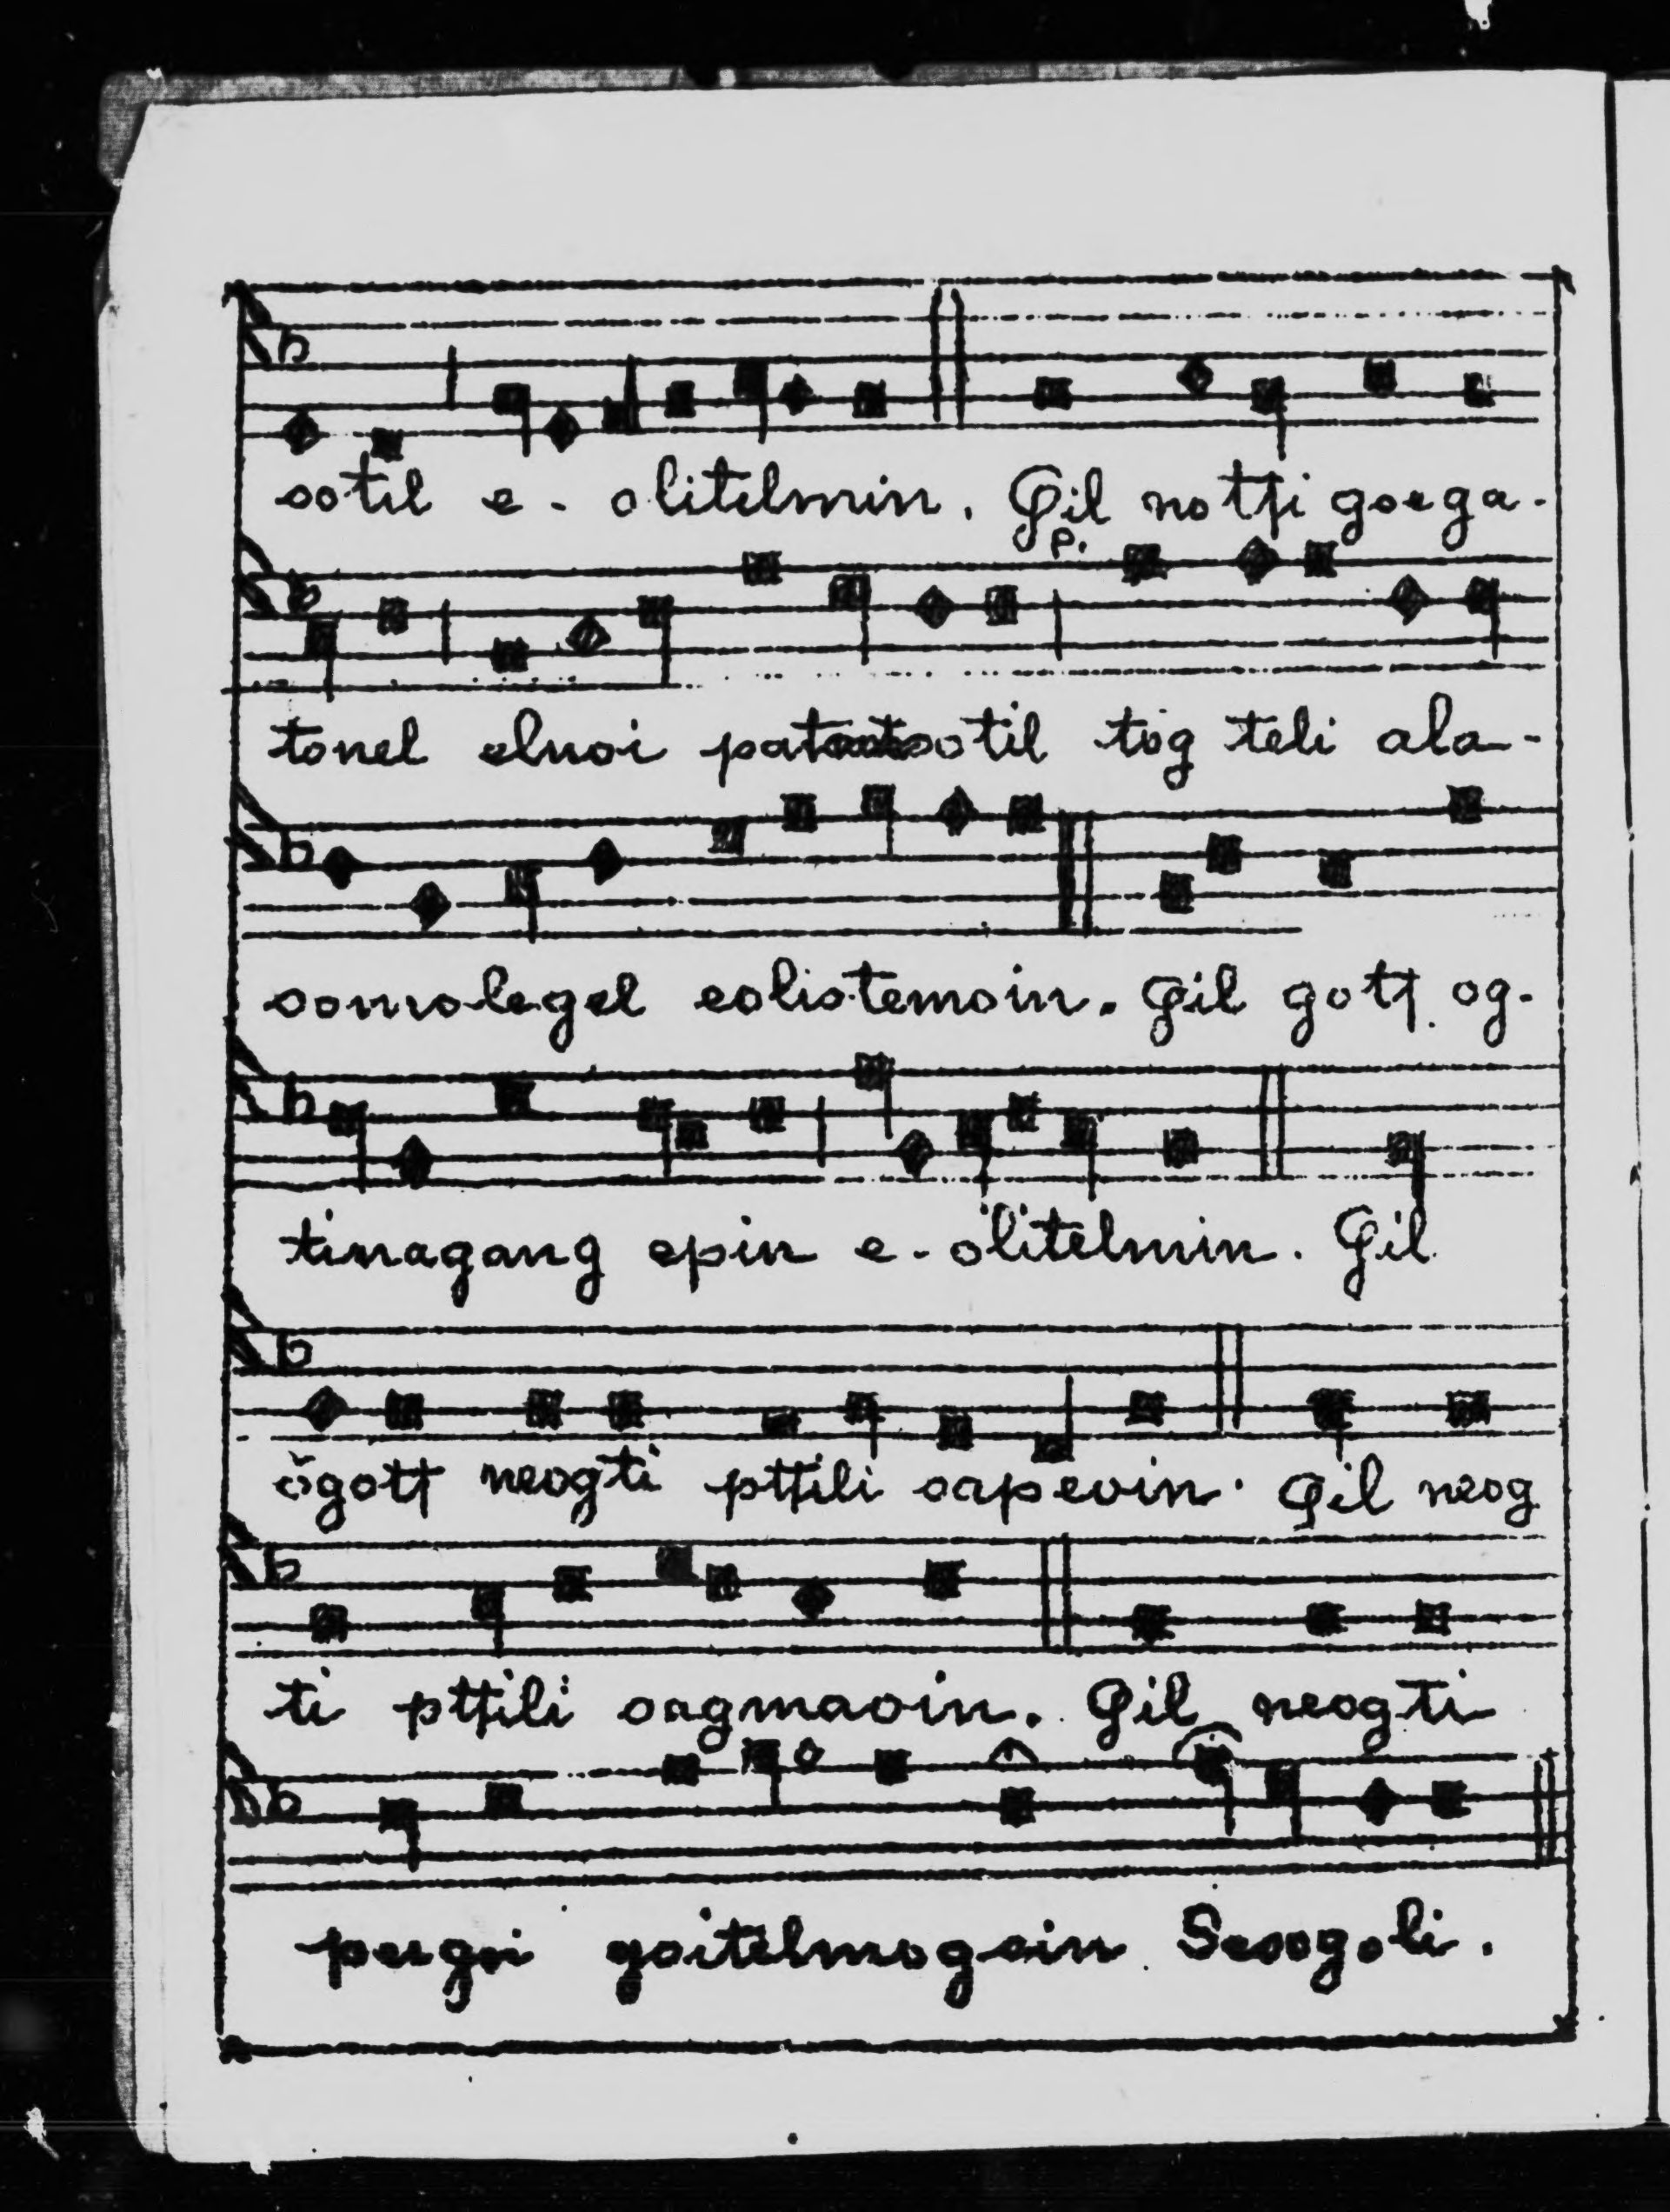 sotil e - olitelmin. Gil notʃi goega-
P.
tonel elnoi patsotil tög teli ala-
somolegel eolistemoin. Gil gotʃ og-
tinagang epin e - ölitelmin. Gil
ögotʃ neogti ptʃili sapeoin. Gil neog
ti ptʃili sagmaoin. Gil neogti
pergoi goitelmogoin Seoogoli.